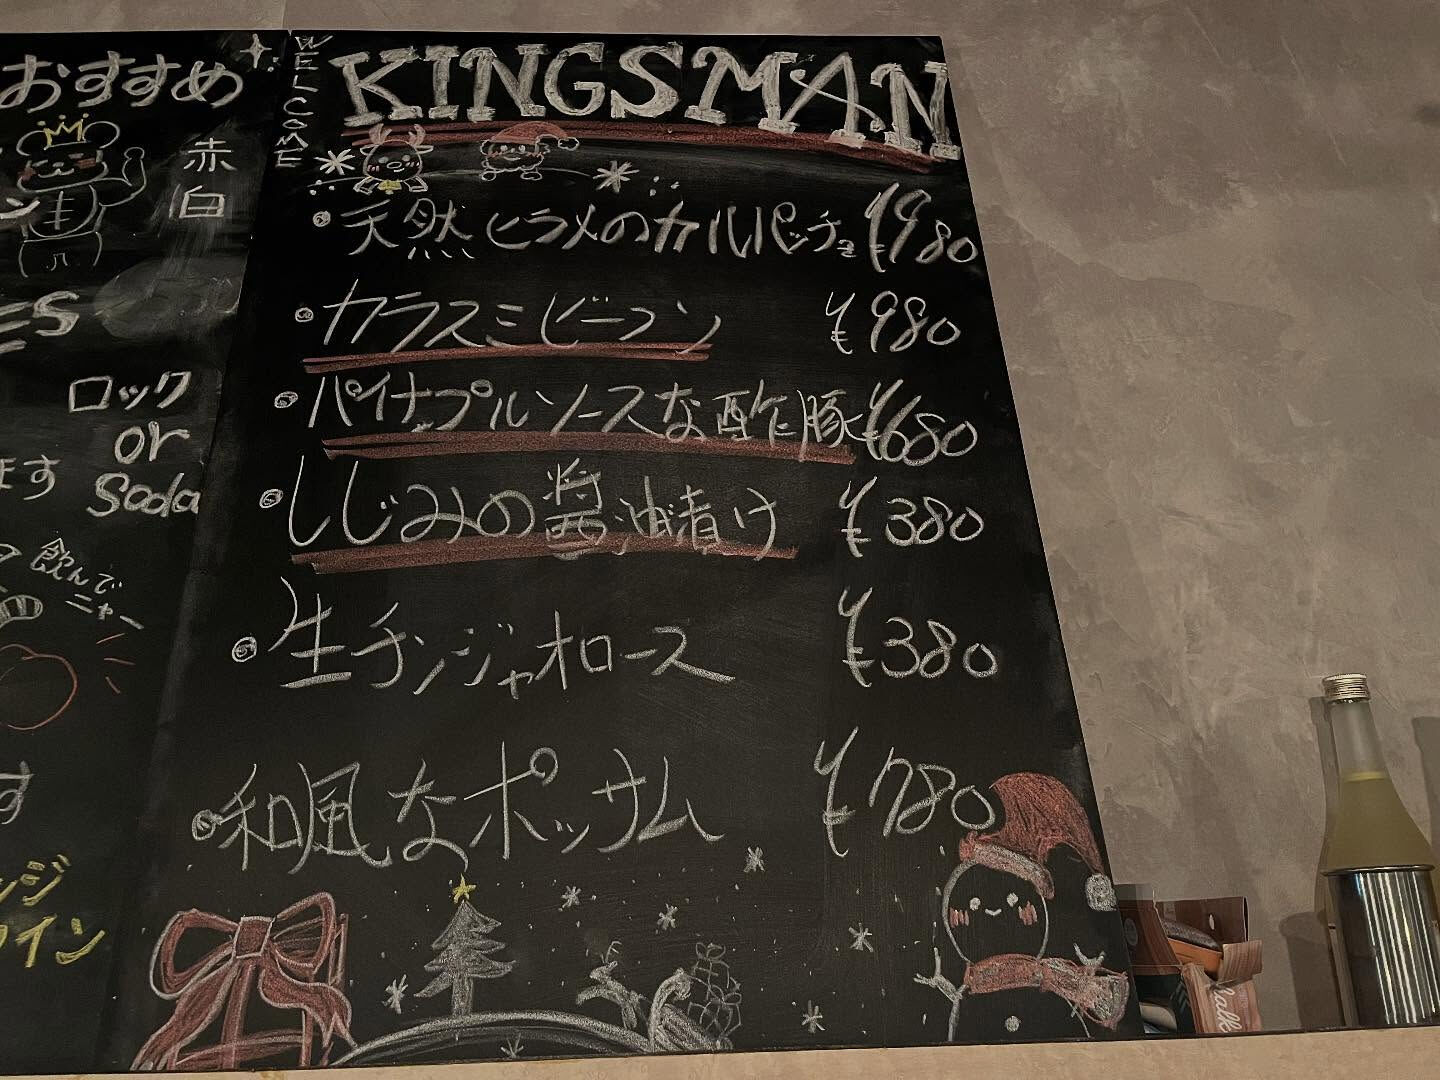 おすすめ
赤
白
ン
ES
ロック
or
Soda
ます
飲んで
ニャー
す
ンジ
ワイン
WELCOME
KINGSMAN
天然ヒラメのカルパッチョ ¥980
カラスミビーフン ¥980
パイナップルソースな酢豚 ¥680
しじみの醤油漬け ¥380
生チンジャオロース ¥380
和風なポッサム ¥780